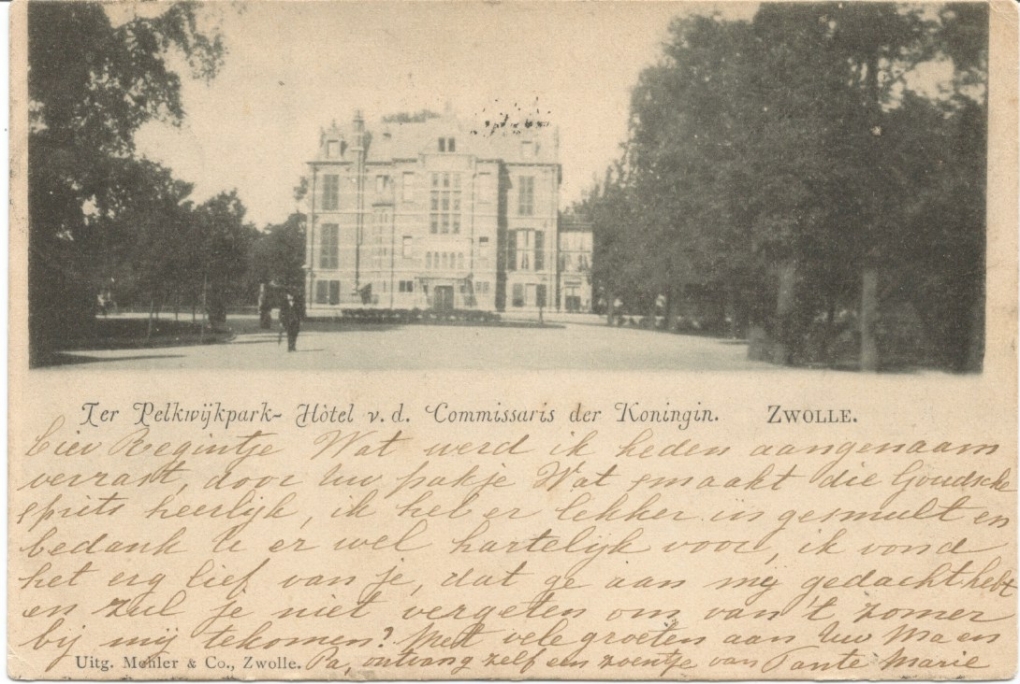 Ter Pelkwijkpark- Hôtel v. d. Commissaris der Koningin. ZWOLLE.
Liev Regintje Wat werd ik heden aangenaam
verrast, door uw pakje Wat smaakt die Goudsche
sprits heerlijk, ik heb er lekker in gesmult en
bedank U er wel hartelijk voor, ik vond
het erg lief van je, dat ge aan mij gedacht hebt
en zul je niet vergeten om van 't zomer
bij mij tekomen? Met vele groeten aan Uw Ma en
Pa, ontvang zelf een zoentje van Tante Marie
Uitg. Mehler & Co., Zwolle.